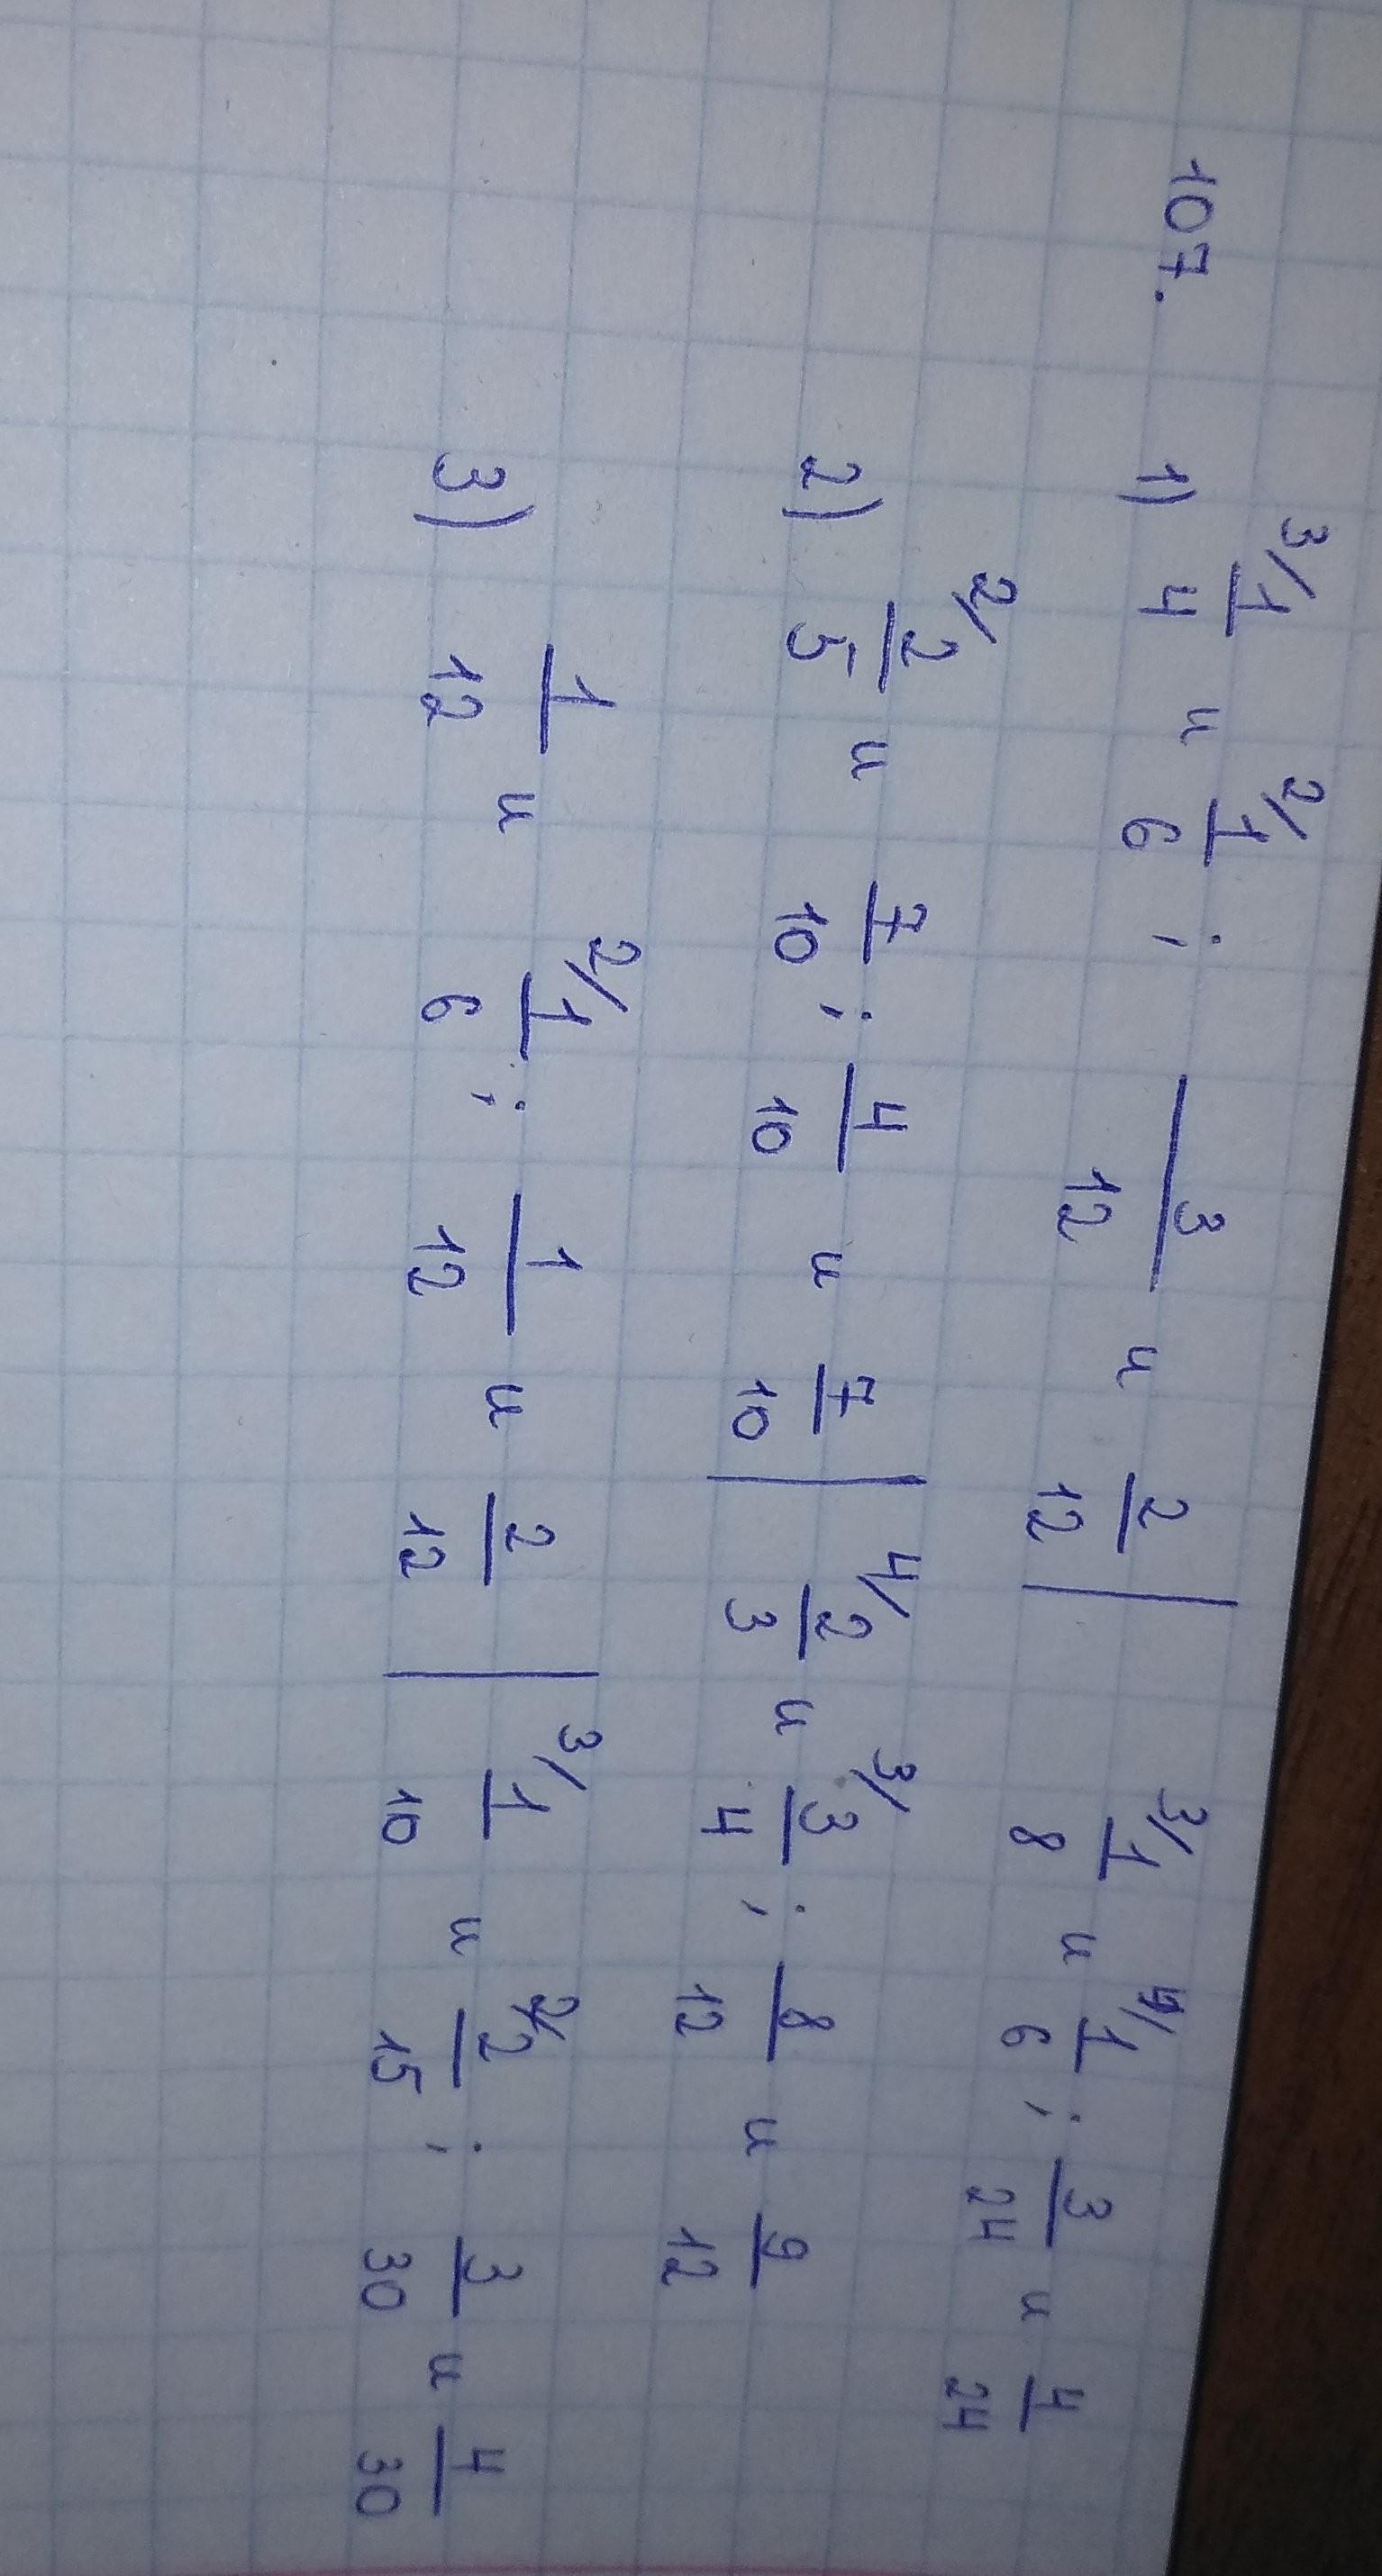 107. 1) 3/ 1/4 и 2/ 1/6 ; 3/12 и 2/12 | 3/ 1/8 и 4/ 1/6 ; 3/24 и 4/24
2) 2/ 2/5 и 7/10 ; 4/10 и 7/10 | 4/ 2/3 и 3/ 3/4 ; 8/12 и 9/12
3) 1/12 и 2/ 1/6 ; 1/12 и 2/12 | 3/ 1/10 и 2/ 2/15 ; 3/30 и 4/30